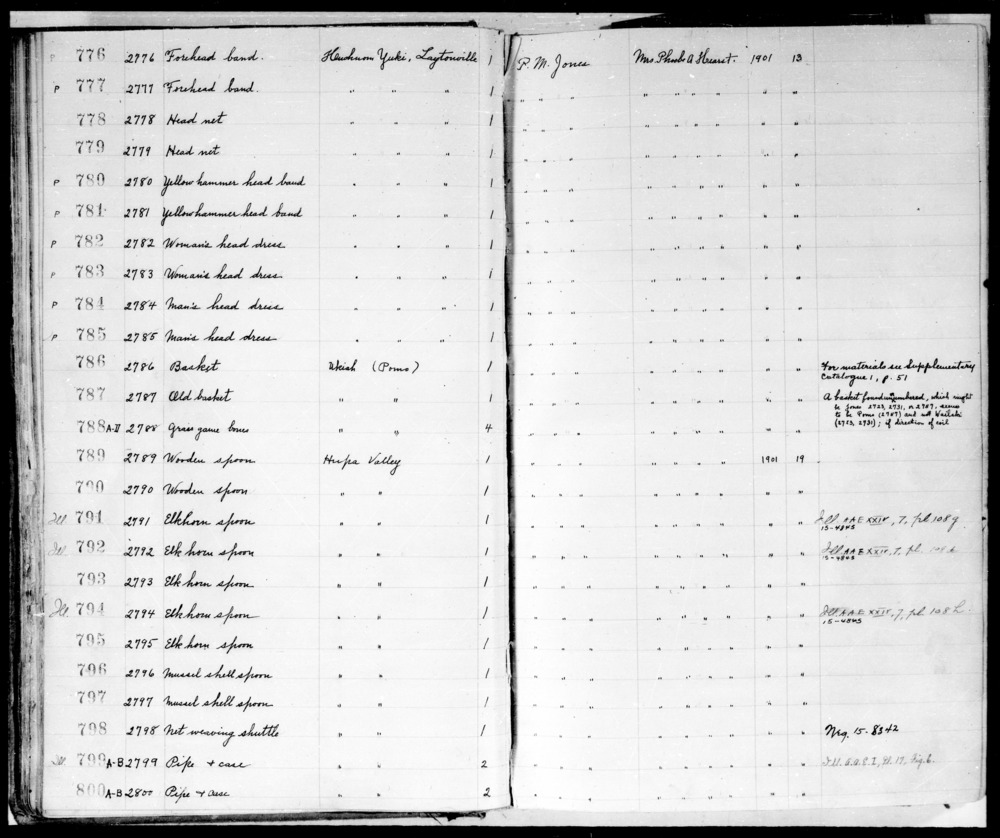 P 776 2776 Forehead band. Huchnom Yuki, Laytonville 1 P. M. Jones Mrs. Phoebe A Hearst. 1901 13
P 777 2777 Forehead band. " " " 1 " " " " " " " " "
778 2778 Head net " " " 1 " " " " " " " " "
779 2779 Head net " " " 1 " " " " " " " " "
P 780 2780 Yellow hammer head band " " " 1 " " " " " " " " "
P 781 2781 Yellowhammer head band " " " 1 " " " " " " " " "
P 782 2782 Woman's head dress " " " 1 " " " " " " " " "
P 783 2783 Woman's head dress " " " 1 " " " " " " " " "
P 784 2784 Man's head dress " " " 1 " " " " " " " " "
P 785 2785 Man's head dress " " " 1 " " " " " " " " "
786 2786 Basket Ukiah (Pomo) 1 " " " " " " " " " For materials see Supplementary
Catalogue 1, p. 51
787 2787 Old basket " " 1 " " " " " " " " " A basket found unnumbered, which might
be Jones 2723, 2731, or 2787, seems
to be Pomo (2787) and not Wailaki
(2723, 2731); if direction of coil
788 A-D 2788 Grass game bones " " 4 " " " " " " " " "
789 2789 Wooden spoon Hupa Valley 1 " " " " " " " 1901 19
790 2790 Wooden spoon " " 1 " " " " " " " " "
Ill. 791 2791 Elkhorn spoon " " 1 " " " " " " " " " Ill. AAE XXIV, 7, pl 108 g
15-4845
Ill 792 2792 Elk horn spoon " " 1 " " " " " " " " " Ill. AAE XXIV, 7, pl.
15-4845
793 2793 Elk horn spoon " " 1 " " " " " " " " "
Ill. 794 2794 Elkhorn spoon " " 1 " " " " " " " " " Ill. AAE XXIV, 7, pl 108 h
15-4845
795 2795 Elk horn spoon " " 1 " " " " " " " " "
796 2796 Mussel shell spoon " " 1 " " " " " " " " "
797 2797 Mussel shell spoon " " 1 " " " " " " " " "
798 2798 Net weaving shuttle " " 1 " " " " " " " " " Neg. 15-8342
Ill 799 A-B 2799 Pipe + case " " 2 " " " " " " " " " Ill. A.A.E. I, Pl. 17, Fig 6.
800 A-B 2800 Pipe + case " " 2 " " " " " " " " "